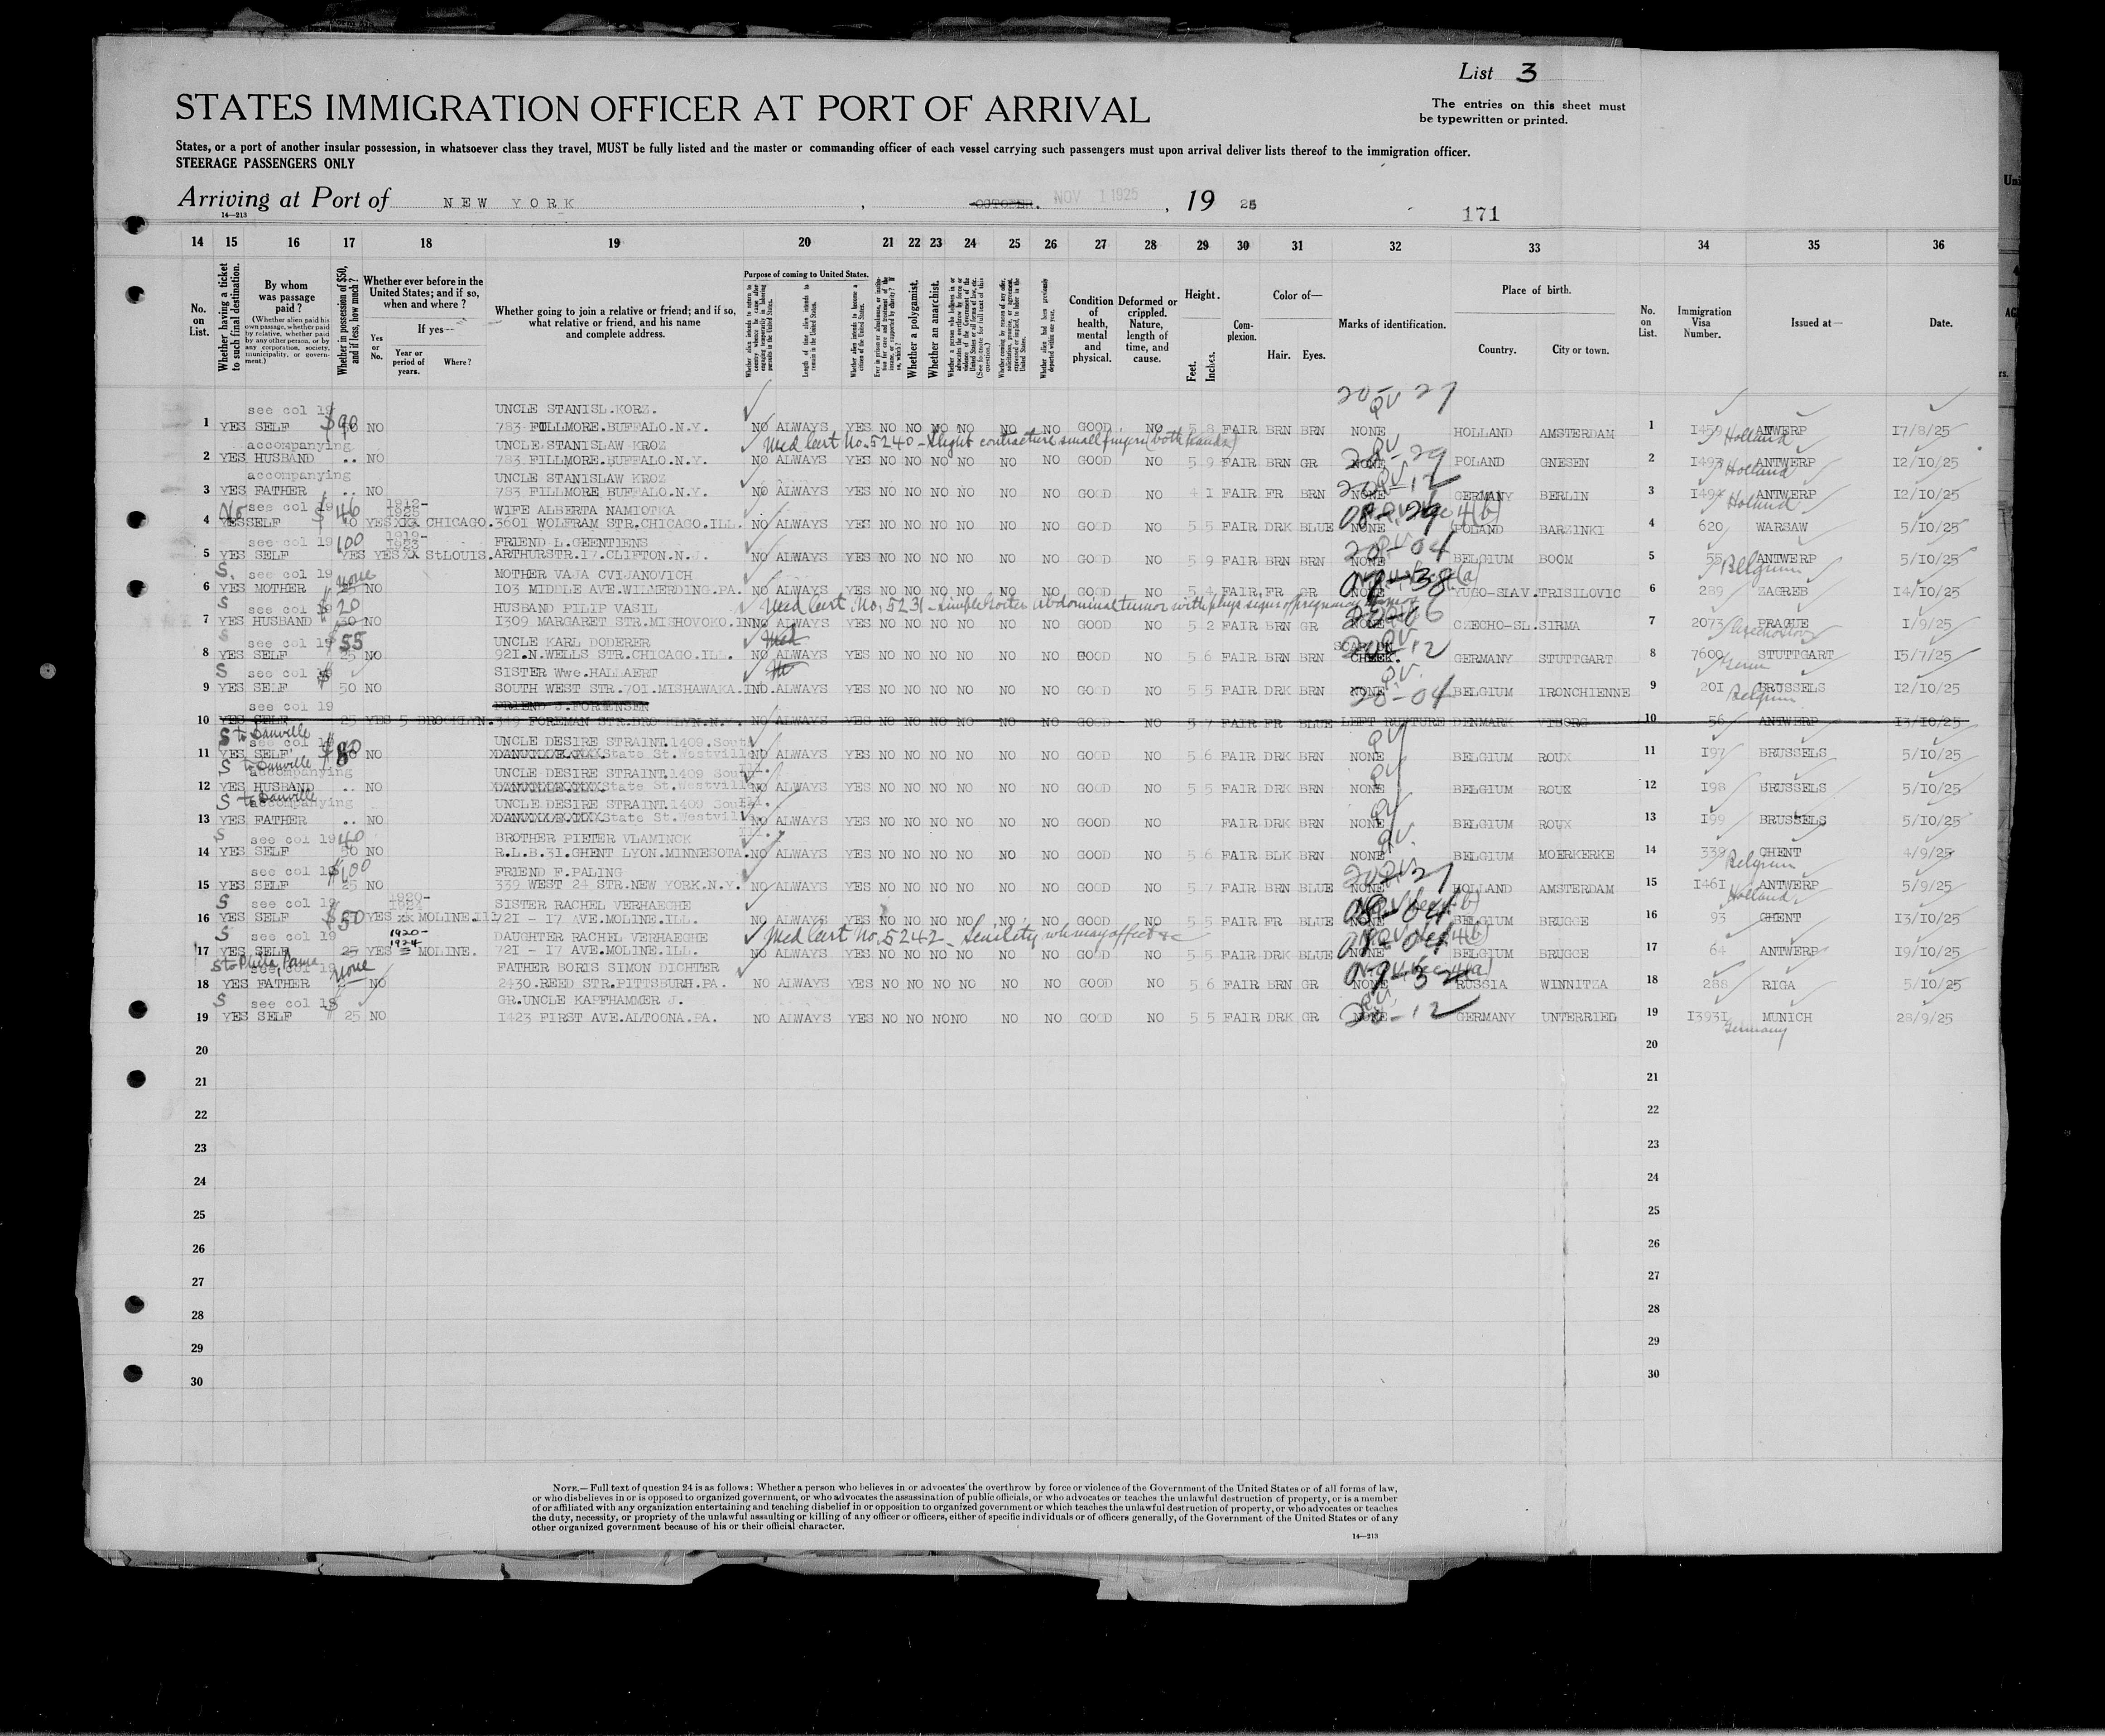 List 3
STATES IMMIGRATION OFFICER AT PORT OF ARRIVAL
The entries on this sheet must
be typewritten or printed.
States, or a port of another insular possession, in whatsoever class they travel, MUST be fully listed and the master or commanding officer of each vessel carrying such passengers must upon arrival deliver lists thereof to the immigration officer.
STEERAGE PASSENGERS ONLY
Arriving at Port of NEW YORK, OCTOBER. NOV 1 1925, 19 25
14—213
171
14 15 16 17 18 19 20 21 22 23 24 25 26 27 28 29 30 31 32 33 34 35 36
No. on List.
Whether having a ticket to such final destination.
By whom was passage paid?
(Whether alien paid his own passage, whether paid by relative, whether paid by any other person, or by any corporation, society, municipality, or government.)
Whether in possession of $50, and if less, how much?
Whether ever before in the United States; and if so, when and where?
If yes—
Yes or No.
Year or period of years.
Where?
Whether going to join a relative or friend; and if so, what relative or friend, and his name and complete address.
Purpose of coming to United States.
Length of time alien intends to remain in the United States.
Whether alien intends to become a citizen of the United States.
Whether a polygamist.
Whether an anarchist.
Condition of health, mental and physical.
Deformed or crippled. Nature, length of time, and cause.
Height.
Feet. Inches.
Complexion.
Color of—
Hair. Eyes.
Marks of identification.
Place of birth.
Country. City or town.
No. on List.
Immigration Visa Number.
Issued at—
Date.
20-27
see col 19 UNCLE STANISL.KORZ. QV
1 YES SELF $90 NO 783 FILLMORE.BUFFALO.N.Y. NO ALWAYS YES NO NO NO NO NO NO GOOD NO 5 8 FAIR BRN BRN NONE HOLLAND AMSTERDAM 1 1459 ANTWERP 17/8/25
accompanying UNCLE STANISLAW KROZ Med Cert No. 5240 - Slight contracture small fingers (both hands) Holland
2 YES HUSBAND .. NO 783 FILLMORE.BUFFALO.N.Y. NO ALWAYS YES NO NO NO NO NO NO GOOD NO 5 9 FAIR BRN GR NONE POLAND GNESEN 2 1493 ANTWERP 12/10/25
accompanying UNCLE STANISLAW KROZ Holland
3 YES FATHER .. NO 783 FILLMORE BUFFALO.N.Y. NO ALWAYS YES NO NO NO NO NO NO GOOD NO 4 1 FAIR FR BRN NONE GERMANY BERLIN 3 1494 ANTWERP 12/10/25
No see col 19 $46 1912- 1925 WIFE ALBERTA NAMIOTKA Holland
4 YES SELF YES CHICAGO. 3601 WOLFRAM STR.CHICAGO.ILL. NO ALWAYS YES NO NO NO NO NO NO GOOD NO 5 5 FAIR DRK BLUE NONE POLAND BARZINKI 4 620 WARSAW 5/10/25
see col 19 100 1919- 1923 FRIEND L.GEENTIENS
5 YES SELF YES YES XX StLOUIS. ARTHURSTR.17.CLIFTON.N.J. NO ALWAYS YES NO NO NO NO NO NO GOOD NO 5 9 FAIR BRN BRN NONE BELGIUM BOOM 5 55 ANTWERP 5/10/25
S. see col 19 none MOTHER VAJA CVIJANOVICH Belgium
6 YES MOTHER 25 NO 103 MIDDLE AVE.WILMERDING.PA. NO ALWAYS YES NO NO NO NO NO NO GOOD NO 5 4 FAIR FR GR NONE YUGO-SLAV. TRISILOVIC 6 289 ZAGREB 14/10/25
S see col 19 $20 HUSBAND PILIP VASIL Med Cert No. 5231 - simple Goiter abdominal tumor with phys signs of pregnancy
7 YES HUSBAND 30 NO 1309 MARGARET STR.MISHOVOKO.IN NO ALWAYS YES NO NO NO NO NO NO GOOD NO 5 2 FAIR BRN GR NONE CZECHO-SL. SIRMA 7 2073 PRAGUE 1/9/25
S see col 19 $55 UNCLE KARL DODERER Czechoslov
8 YES SELF 25 NO 921.N.WELLS STR.CHICAGO.ILL. NO ALWAYS YES NO NO NO NO NO NO GOOD NO 5 6 FAIR BRN BRN CHEEK. GERMANY STUTTGART 8 7600 STUTTGART 15/7/25
S see col 19 $ SISTER Wwe.HALLAERT Germ
9 YES SELF 50 NO SOUTH WEST STR.701.MISHAWAKA.IND. ALWAYS YES NO NO NO NO NO NO GOOD NO 5 5 FAIR DRK BRN NONE BELGIUM IRONCHIENNE 9 201 BRUSSELS 12/10/25
see col 19 FRIEND J.FORTENSEN 20-04 Belgium
10 YES SELF 25 YES 5 BROOKLYN. 349 FOREMAN STR.BROOKLYN.N.Y. NO ALWAYS YES NO NO NO NO NO NO GOOD NO 5 7 FAIR FR BLUE LEFT RUPTURE DENMARK VIBORG 10 56 ANTWERP 13/10/25
S to Danville see col 19 UNCLE DESIRE STRAINT.1409.South QV
11 YES SELF $80 NO State St.Westville NO ALWAYS YES NO NO NO NO NO NO GOOD NO 5 6 FAIR DRK BRN NONE BELGIUM ROUX 11 197 BRUSSELS 5/10/25
S to Danville accompanying UNCLE DESIRE STRAINT.1409 South QV
12 YES HUSBAND .. NO State St.Westville NO ALWAYS YES NO NO NO NO NO NO GOOD NO 5 5 FAIR DRK BRN NONE BELGIUM ROUX 12 198 BRUSSELS 5/10/25
S to Danville accompanying UNCLE DESIRE STRAINT.1409 South QV
13 YES FATHER .. NO State St.Westvill NO ALWAYS YES NO NO NO NO NO NO GOOD NO FAIR DRK BRN NONE BELGIUM ROUX 13 199 BRUSSELS 5/10/25
S see col 19 40 BROTHER PIETER VLAMINCK QV.
14 YES SELF 50 NO R.L.B.31.GHENT LYON.MINNESOTA. NO ALWAYS YES NO NO NO NO NO NO GOOD NO 5 6 FAIR BLK BRN NONE BELGIUM MOERKERKE 14 339 GHENT 4/9/25
see col 19 $100 FRIEND F.PALING Belgium
15 YES SELF 25 NO 339 WEST 24 STR.NEW YORK.N.Y. NO ALWAYS YES NO NO NO NO NO NO GOOD NO 5 7 FAIR BRN BLUE NONE HOLLAND AMSTERDAM 15 1461 ANTWERP 5/9/25
S see col 19 1920- 1924 SISTER RACHEL VERHAEGHE Holland
16 YES SELF $50 YES xx MOLINE.Ill 721 - 17 AVE.MOLINE.ILL. NO ALWAYS YES NO NO NO NO NO NO GOOD NO 5 5 FAIR FR BLUE NONE BELGIUM BRUGGE 16 93 GHENT 13/10/25
S see col 19 1920- 1924 DAUGHTER RACHEL VERHAEGHE Med Cert No. 5242 - Senility wh may affect &c
17 YES SELF 25 YES MOLINE. 721 - 17 AVE.MOLINE.ILL. NO ALWAYS YES NO NO NO NO NO NO GOOD NO 5 5 FAIR DRK BLUE NONE BELGIUM BRUGGE 17 64 ANTWERP 19/10/25
S to Phila Penna see col 19 none FATHER BORIS SIMON DICHTER
18 YES FATHER NO 2430.REED STR.PITTSBURH.PA. NO ALWAYS YES NO NO NO NO NO NO GOOD NO 5 6 FAIR BRN GR NONE RUSSIA WINNITZA 18 288 RIGA 5/10/25
S see col 19 $ GR.UNCLE KAPFHAMMER J. QV
19 YES SELF 25 NO 1423 FIRST AVE.ALTOONA.PA. NO ALWAYS YES NO NO NO NO NO NO GOOD NO 5 5 FAIR DRK GR NONE GERMANY UNTERRIED 19 13931 MUNICH 28/9/25
Germany
20 20
21 21
22 22
23 23
24 24
25 25
26 26
27 27
28 28
29 29
30 30
NOTE.—Full text of question 24 is as follows: Whether a person who believes in or advocates the overthrow by force or violence of the Government of the United States or of all forms of law,
or who disbelieves in or is opposed to organized government, or who advocates the assassination of public officials, or who advocates or teaches the unlawful destruction of property, or is a member
of or affiliated with any organization entertaining and teaching disbelief in or opposition to organized government or which teaches the unlawful destruction of property, or who advocates or teaches
the duty, necessity, or propriety of the unlawful assaulting or killing of any officer or officers, either of specific individuals or of officers generally, of the Government of the United States or of any
other organized government because of his or their official character.
14—213